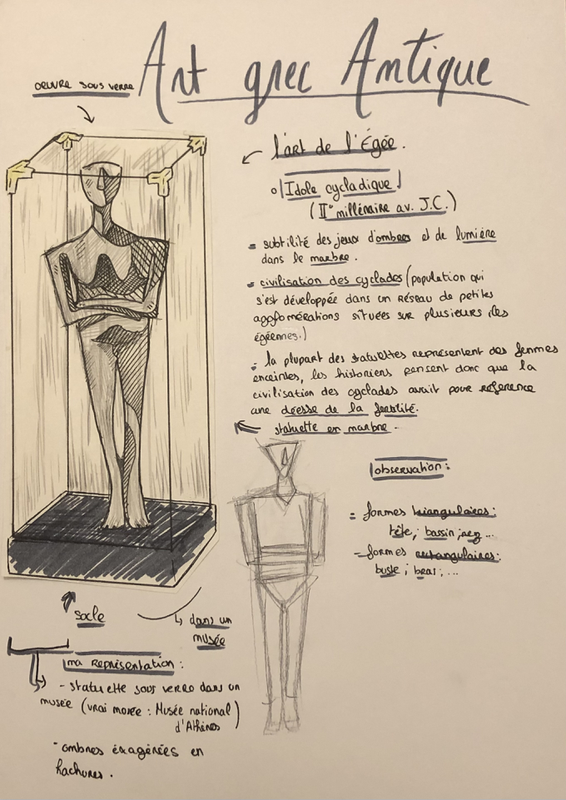 Art grec Antique
œuvre sous verre
l'art de l'Égée.
Idole cycladique
(IIe millénaire av. J.C.)
= subtilité des jeux d'ombres et de lumière
dans le marbre.
= civilisation des cyclades (population qui
s'est développée dans un réseau de petites
agglomérations situées sur plusieurs îles
égéennes.)
- la plupart des statuettes représentent des femmes
enceintes, les historiens pensent donc que la
civilisation des cyclades avait pour référence
une déesse de la fertilité.
statuette en marbre.
observation:
= formes triangulaires:
tête; bassin; nez...
- formes rectangulaires:
buste; bras;...
socle
dans un
musée
ma représentation:
- statuette sous verre dans un
musée (vrai musée: Musée national
d'Athènes)
- ombres éxagérées en
hachures.